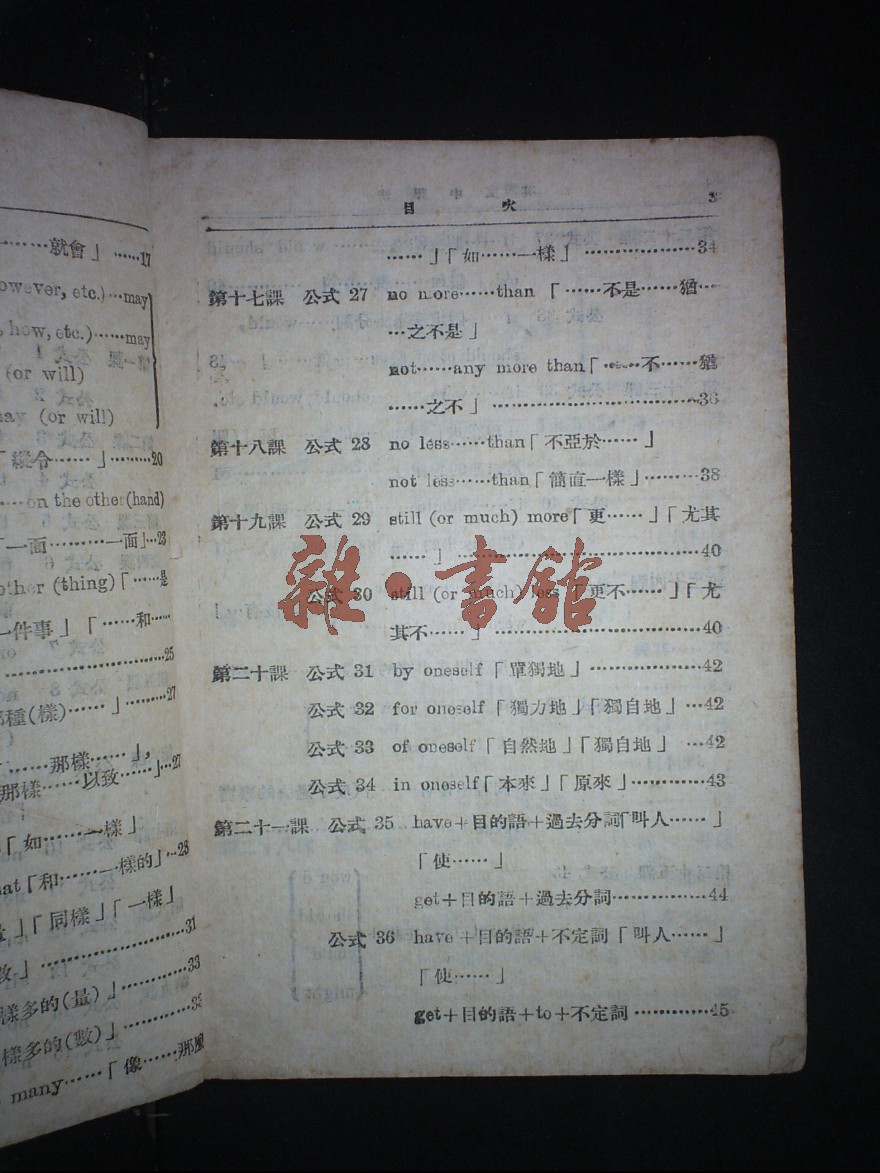 ………就會」……17
owever, etc.)…may
, how, etc.)……may
(or will)
may (or will)
「縱令……」………20
……on the other(hand)
「一面………一面」…23
other (thing)「……是
一件事」「……和……
……………………25
那種(樣)……」………27
「……那樣……」,
那樣……以致……」…27
「如……一樣」
hat「和……一樣的」…28
」「同樣」「一樣」
數」……………………31
樣多的(量)」…………33
樣多的(數)」…………33
many……「像……那風
目 次 3
……」「如……一樣」……………34
第十七課 公式 27 no more……than「……不是……猶
…之不是」
not……any more than「……不……猶
……之不」……………………36
第十八課 公式 28 no less……than「不亞於……」
not less……than「簡直一樣」………38
第十九課 公式 29 still (or much) more「更……」「尤其
……」……………………………40
公式 30 still (or much) less「更不……」「尤
其不……」………………………40
第二十課 公式 31 by oneself「單獨地」……………42
公式 32 for oneself「獨力地」「獨自地」…42
公式 33 of oneself「自然地」「獨自地」…42
公式 34 in oneself「本來」「原來」…………43
第二十一課 公式 35 have+目的語+過去分詞「叫人……」
「使……」
get+目的語+過去分詞……………44
公式 36 have+目的語+不定詞「叫人……」
「使……」
get+目的語+to+不定詞…………45
雜·書館